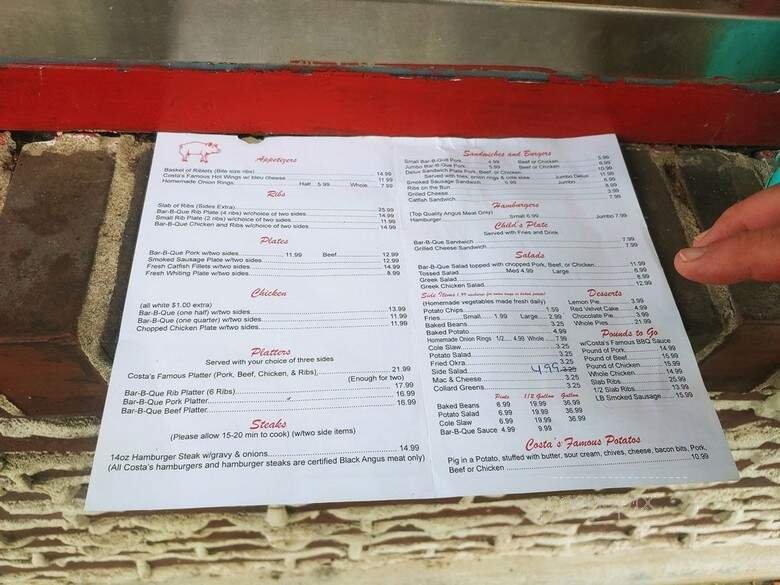 Appetizers
Basket of Riblets (Bite size ribs) 14.99
Costa's Famous Hot Wings w/ bleu cheese 11.99
Homemade Onion Rings: Half 5.99 Whole 7.99
Ribs
Slab of Ribs (Sides Extra) 25.99
Bar-B-Que Rib Plate (4 ribs) w/choice of two sides 14.99
Small Rib Plate (2 ribs) w/choice of two sides 11.99
Bar-B-Que Chicken and Ribs w/choice of two sides 14.99
Plates
Bar-B-Que Pork w/two sides 11.99 Beef 12.99
Smoked Sausage Plate w/two sides 12.99
Fresh Catfish Fillets w/two sides 14.99
Fresh Whiting Plate w/two sides 8.99
Chicken
(all white $1.00 extra)
Bar-B-Que (one half) w/two sides 13.99
Bar-B-Que (one quarter) w/two sides 11.99
Chopped Chicken Plate w/two sides 11.99
Platters
Served with your choice of three sides
Costa's Famous Platter (Pork, Beef, Chicken, & Ribs), 21.99
(Enough for two)
Bar-B-Que Rib Platter (6 Ribs) 17.99
Bar-B-Que Pork Platter 16.99
Bar-B-Que Beef Platter 16.99
Steaks
(Please allow 15-20 min to cook) (w/two side items)
14oz Hamburger Steak w/gravy & onions 14.99
(All Costa's hamburgers and hamburger steaks are certified Black Angus meat only)
Sandwiches and Burgers
Small Bar-B-Que Pork 4.99 Beef or Chicken 5.99
Jumbo Bar-B-Que Pork 5.99 Beef or Chicken 6.99
Delux Sandwich Plate Pork Beef or Chicken 10.99
Served with fries, onion rings & cole slaw Jumbo Delux 11.99
Smoked Sausage Sandwich 5.99 Jumbo 6.99
Ribs on the Bun 8.99
Grilled Cheese 3.99
Catfish Sandwich 7.99
Hamburgers
(Top Quality Angus Meat Only)
Hamburger Small 6.99 Jumbo 7.99
Child's Plate
Served with Fries and Drink
Bar-B-Que Sandwich 7.99
Grilled Cheese Sandwich 7.99
Salads
Bar-B-Que Salad topped with chopped Pork, Beef, or Chicken 11.99
Tossed Salad Med 4.99 Large 6.99
Greek Salad 8.99
Greek Chicken Salad 12.99
Side Items
(Homemade vegetables made fresh daily)
Potato Chips 1.59
Fries Small 1.99 Large 2.99
Baked Beans 3.25
Baked Potato 4.99
Homemade Onion Rings 1/2 4.99 Whole 7.99
Cole Slaw 3.25
Potato Salad 3.25
Fried Okra 3.25
Side Salad 4.99 3.25
Mac & Cheese 3.25
Collard Greens 3.25
Pints 1/2 Gallon Gallon
Baked Beans 6.99 19.99 36.99
Potato Salad 6.99 19.99 36.99
Cole Slaw 6.99 19.99 36.99
Bar-B-Que Sauce 4.99 9.99
Desserts
Lemon Pie 3.99
Red Velvet Cake 4.99
Chocolate Pie 3.99
Whole Pies 21.99
Pounds to Go
w/Costa's Famous BBQ Sauce
Pound of Pork 14.99
Pound of Beef 15.99
Pound of Chicken 15.99
Whole Chicken 14.99
Slab Ribs 25.99
1/2 Slab Ribs 13.99
LB Smoked Sausage 15.99
Costa's Famous Potatos
Pig in a Potato, stuffed with butter, sour cream, chives, cheese, bacon bits, Pork,
Beef or Chicken 10.99